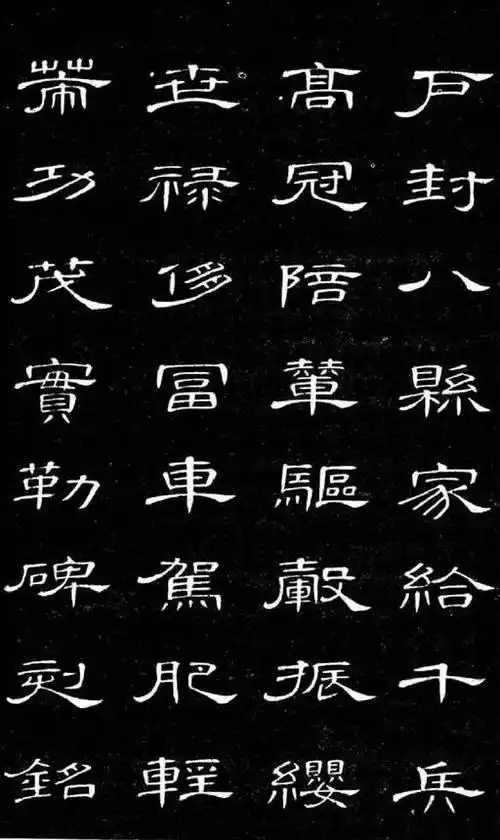 戶封八縣家給千兵
髙冠陪輦驅轂振纓
世禄侈冨車駕肥輕
策功茂實勒碑刻銘